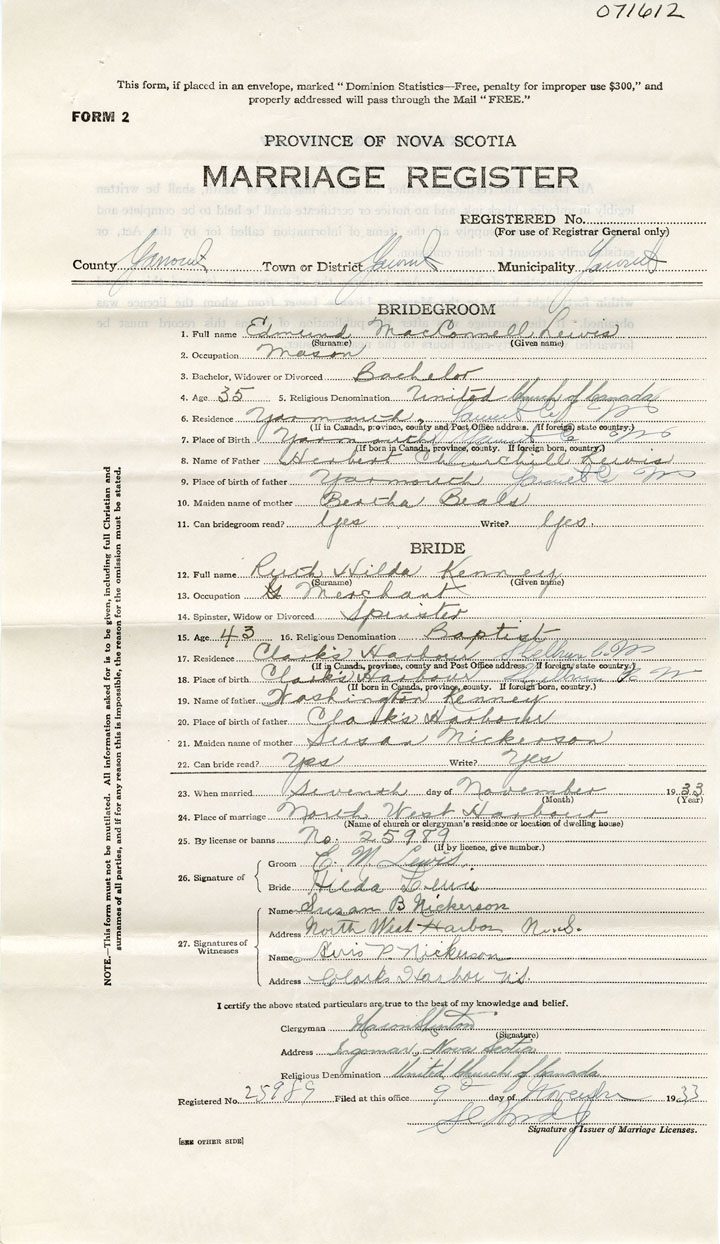 071612
This form, if placed in an envelope, marked "Dominion Statistics—Free, penalty for improper use $300," and
properly addressed will pass through the Mail "FREE."
FORM 2
PROVINCE OF NOVA SCOTIA
MARRIAGE REGISTER
REGISTERED No.
(For use of Registrar General only)
County Town or District Municipality
BRIDEGROOM
1. Full name Edmund MacConnell Lewis
(Surname) (Given name)
2. Occupation Mason
3. Bachelor, Widower or Divorced Bachelor
4. Age 35 5. Religious Denomination United Church of Canada
6. Residence Yarmouth, N S
(If in Canada, province, county and Post Office address. If foreign, state country.)
7. Place of Birth Yarmouth N S
(If born in Canada, province, county. If foreign born, country.)
8. Name of Father Herbert Churchill Lewis
9. Place of birth of father Yarmouth N S
10. Maiden name of mother Bertha Beals
11. Can bridegroom read? Yes Write? Yes.
BRIDE
12. Full name Ruth Hilda Kenney
(Surname) (Given name)
13. Occupation Merchant
14. Spinster, Widow or Divorced Spinster
15. Age 43 16. Religious Denomination Baptist
17. Residence Clark's Harbour
(If in Canada, province, county and Post Office address. If foreign, state country.)
18. Place of birth Clark's Harbour
(If born in Canada, province, county. If foreign born, country.)
19. Name of father Washington Kenney
20. Place of birth of father Clark's Harbour
21. Maiden name of mother Susan Nickerson
22. Can bride read? Yes Write? Yes
23. When married Seventh day of November 1933
(Month) (Year)
24. Place of marriage North West Harbour
(Name of church or clergyman's residence or location of dwelling house)
25. By license or banns No. 25989
(If by licence, give number.)
26. Signature of
Groom E. M. Lewis.
Bride Hilda
27. Signatures of Witnesses
Name Susan B Nickerson
Address North West Harbor N.S.
Name P. Nickerson
Address Clarks Harbor NS
I certify the above stated particulars are true to the best of my knowledge and belief.
Clergyman
(Signature)
Address Ingomar, Nova Scotia
Religious Denomination United Church of Canada
Registered No. 25989 Filed at this office 9th day of November 1933
Signature of Issuer of Marriage Licenses.
[SEE OTHER SIDE]
NOTE.—This form must not be mutilated. All information asked for is to be given, including full Christian and
surnames of all parties, and if for any reason this is impossible, the reason for the omission must be stated.